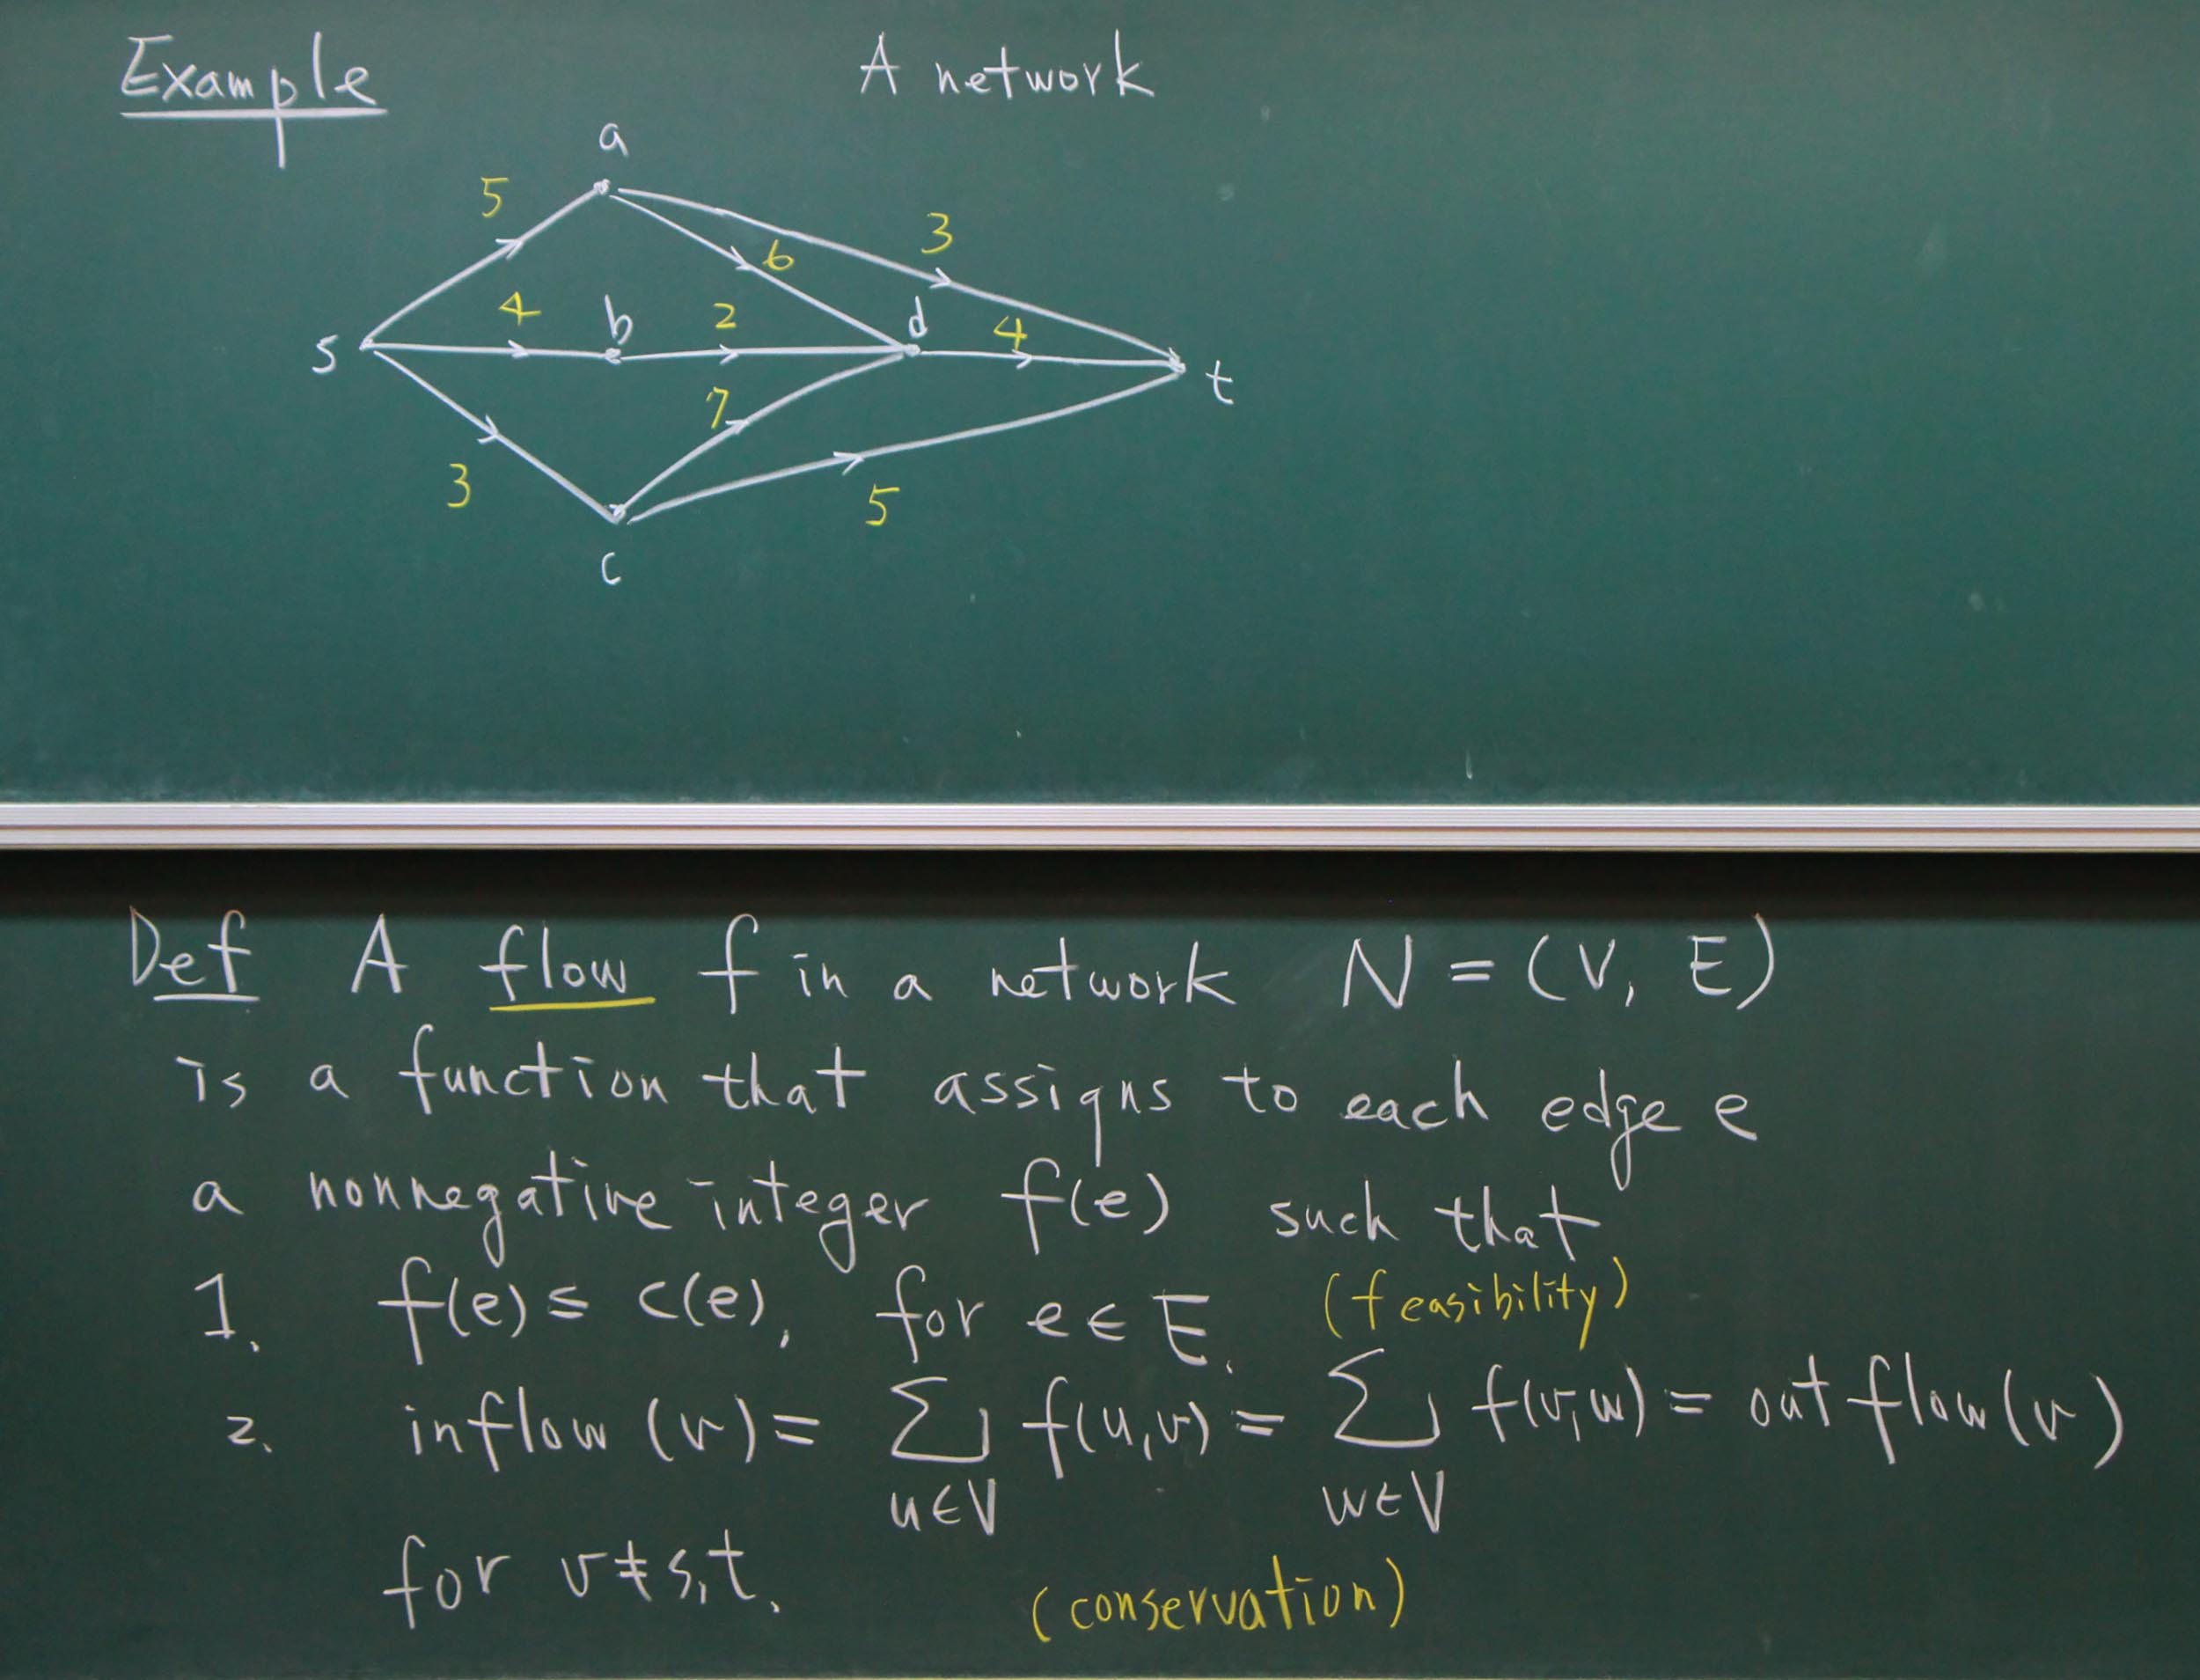 Example
A network
a
5
3
6
s
4
b
2
d
4
t
7
3
5
c
Def A flow f in a network N = (V, E)
is a function that assigns to each edge e
a nonnegative integer f(e) such that
1. f(e) ≤ c(e), for e ∈ E. (feasibility)
2. inflow (v) = ∑ f(u,v) = ∑ f(v,w) = outflow(v)
u∈V w∈V
for v ≠ s,t. (conservation)